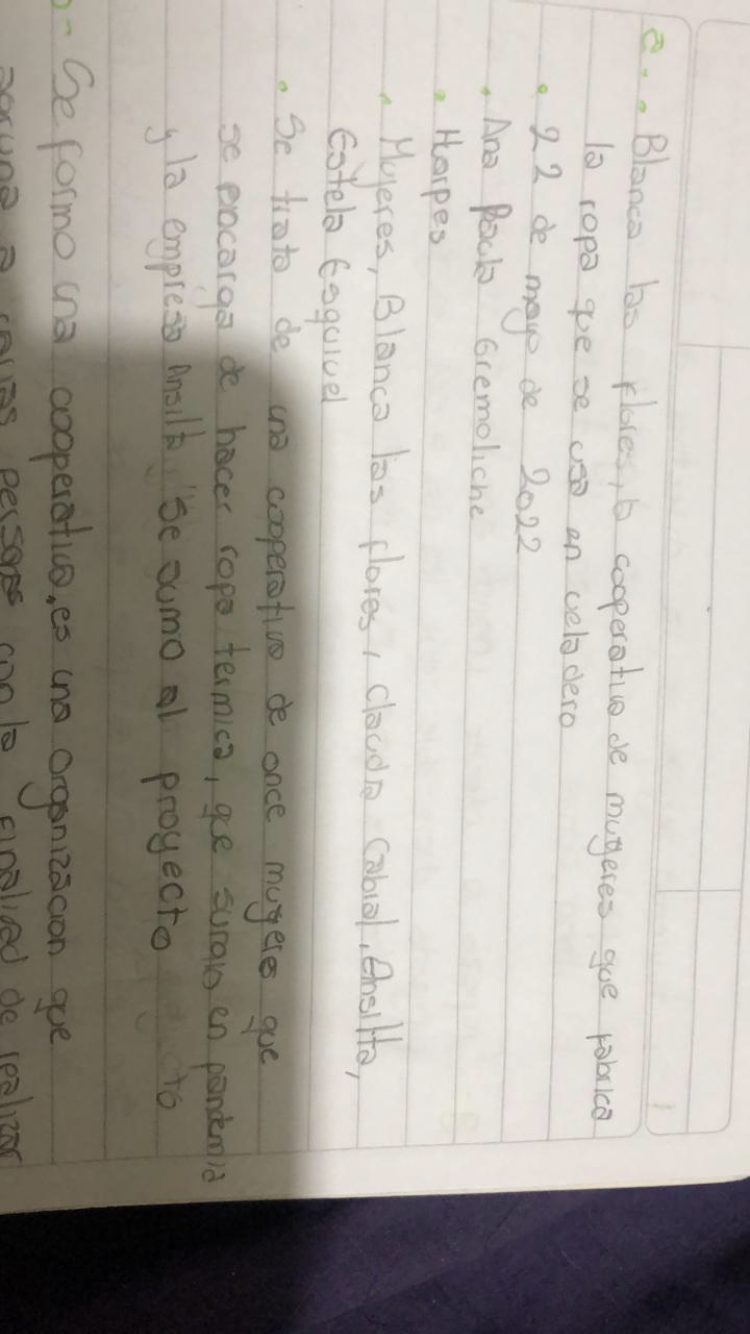 a. • Blanca las flores, la cooperativa de mugeres que fabrica
la ropa que se usa en veladero
• 22 de mayo de 2022
• Ana Paula Gremoliche
• Harpes
• Mujeres, Blanca las flores, Claudia Cabral, Ansilta,
Estela Esquivel
• Se trata de una cooperativa de once mugeres que
se encarga de hacer ropa termica, que surgio en pandemia
y la empresa Ansilta se sumo al proyecto
b- Se formo una cooperativa, es una organizacion que
a varias personas con la finalidad de realizar